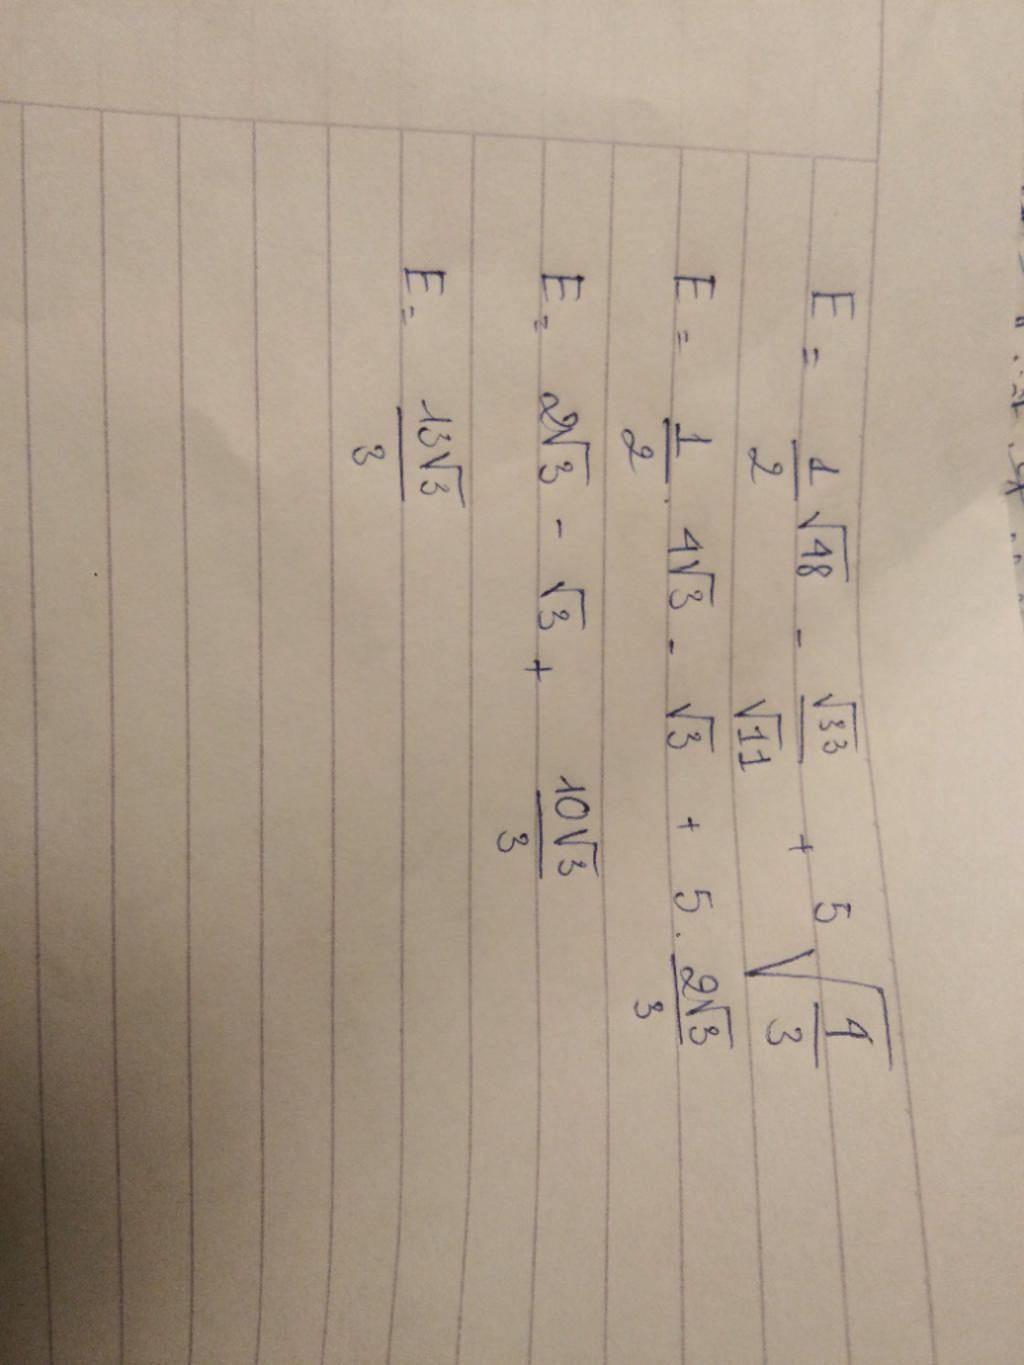 E = 1/2 √48 - √33/√11 + 5√(4/3)
E = 1/2 . 4√3 - √3 + 5 . 2√3/3
E = 2√3 - √3 + 10√3/3
E = 13√3/3